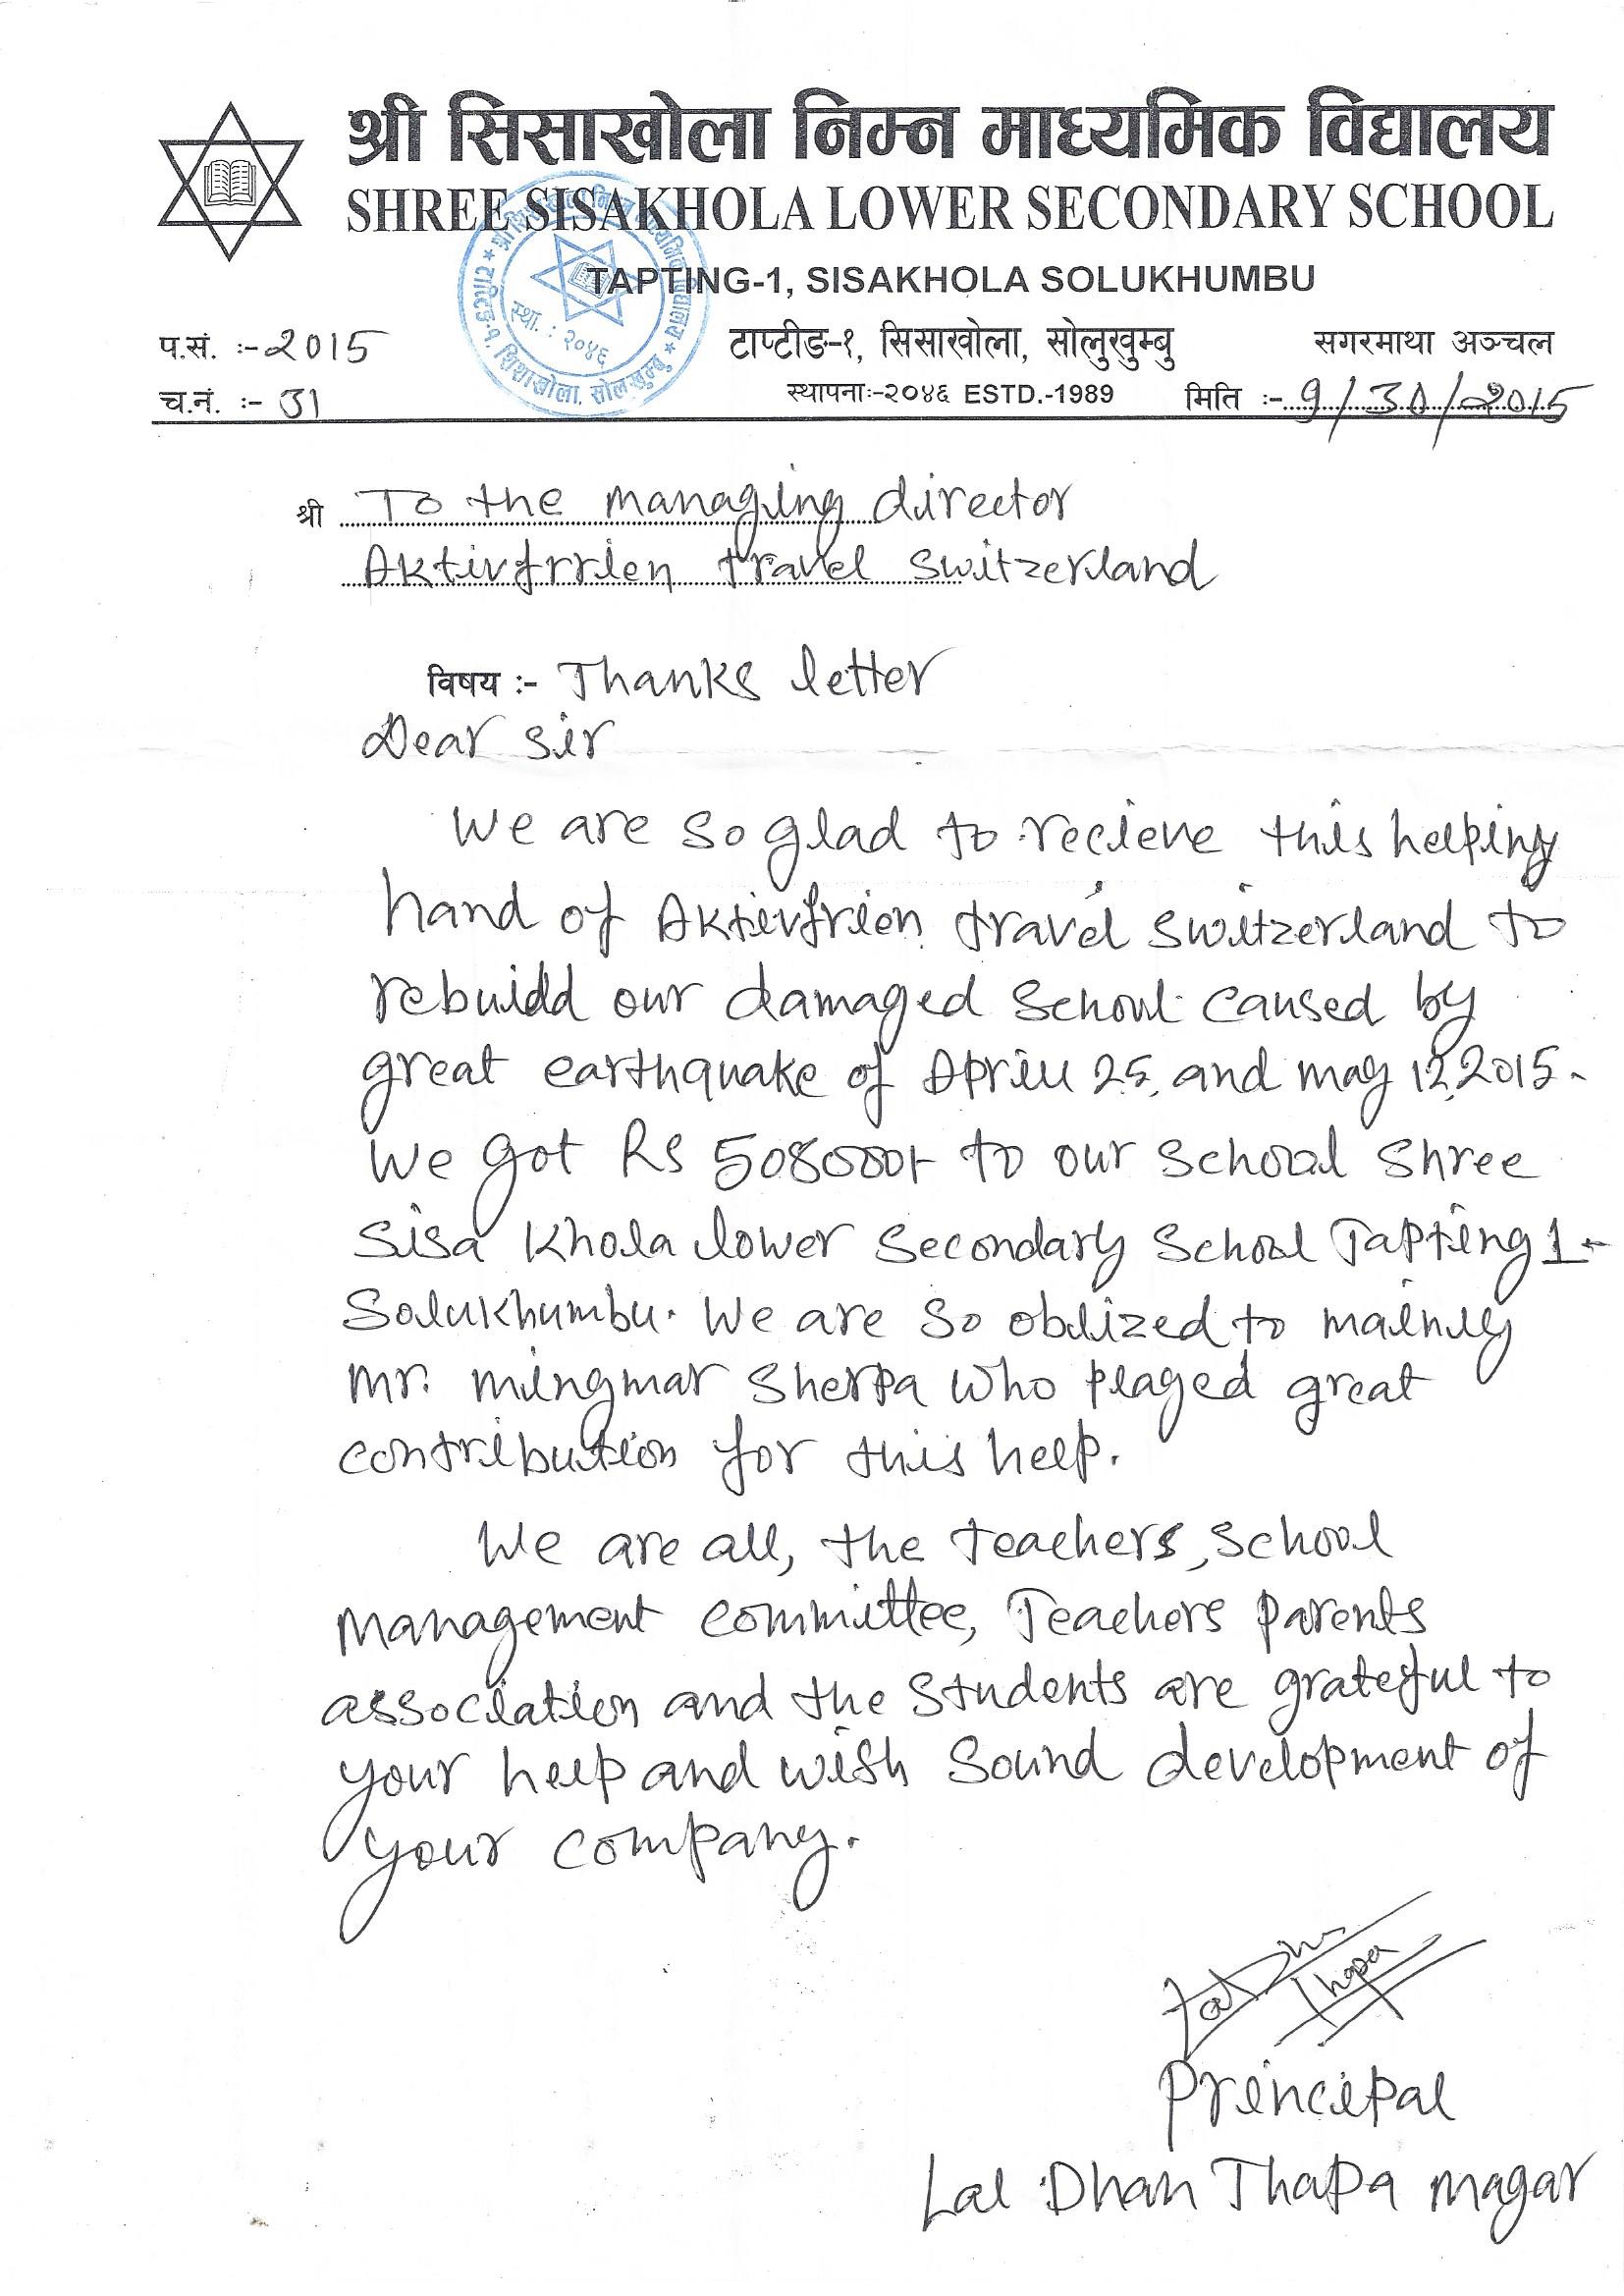 श्री सिसाखोला निम्न माध्यमिक विद्यालय
SHREE SISAKHOLA LOWER SECONDARY SCHOOL
TAPTING-1, SISAKHOLA SOLUKHUMBU
प.सं. :- 2015
टाप्टीङ-१, सिसाखोला, सोलुखुम्बु
सगरमाथा अञ्चल
च.नं. :- 31
स्थापनाः-२०४६ ESTD.-1989
मिति :- 9/30/2015
स्था. : २०४६
श्री To the managing director
Aktivfrrien travel switzerland
विषय :- Thanks letter
Dear sir
We are so glad to recieve this helping
hand of Aktivfrien travel switzerland to
rebuidd our damaged school caused by
great earthquake of April 25, and may 12, 2015.
We got Rs 508000/- to our school shree
sisa khola lower secondary school Tapting 1-
Solukhumbu. We are so oblized to mainly
mr. mingmar sherpa who played great
contribution for this help.
We are all, the teachers, school
management committee, Teachers parents
association and the students are grateful to
your help and wish sound development of
your company.
Lal Dhan
Thapa
Principal
Lal Dhan Thapa magar